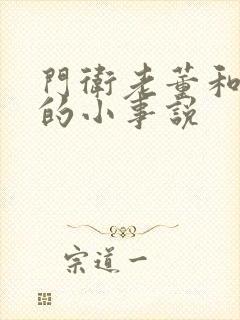 門衛老董和
的小事說
宗道一